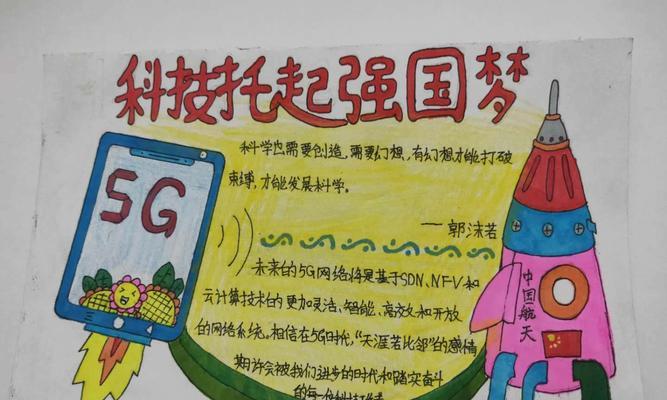 科技托起强国梦
5G
科学也需要创造,需要幻想,有幻想才能打破
束缚,才能发展科学。
——郭沫若
未来的5G网络将是基于SDN、NFV和
云计算技术的更加灵活、智能、高效和开放
的网络系统。相信在5G时代,“天涯若比邻”的感情
期许会被我们进步的时代和踏实奋斗
的每一位科技
中国航天